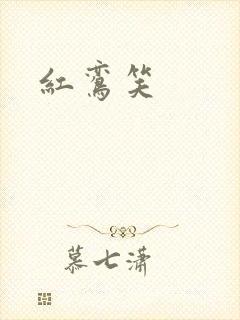 紅鸞笑
慕七潇